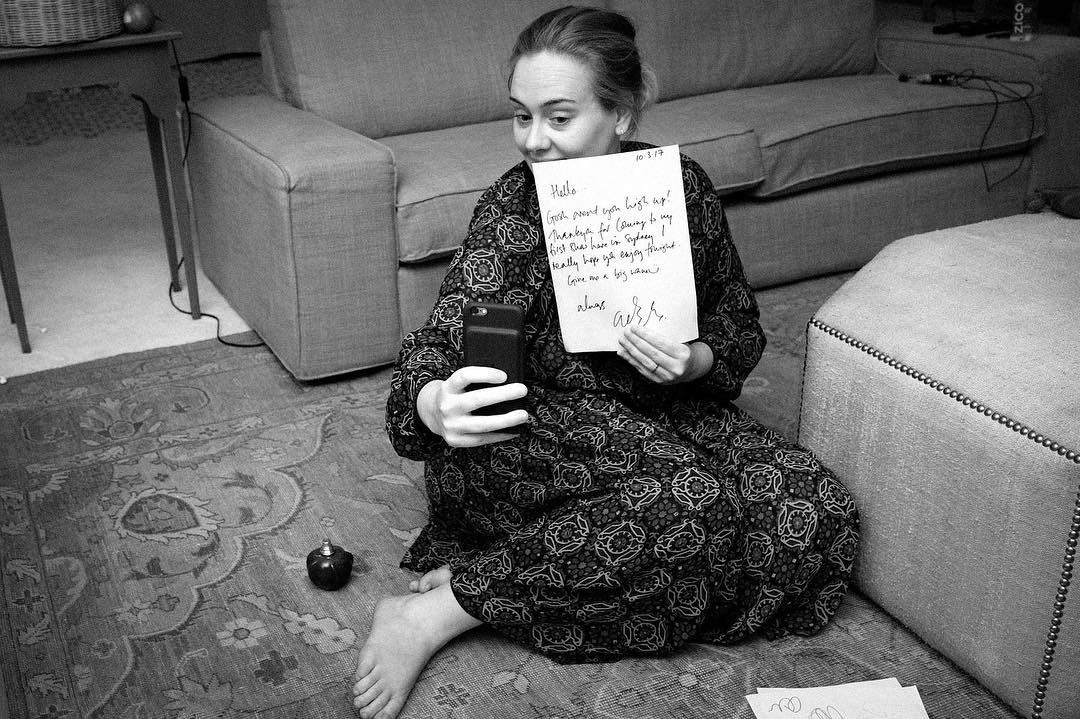 ZICO
10.3.17
Hello..
Gosh you high up!
Thankyou for coming to my
first show here in Sydney! I
really hope ya enjoy tonight
Give me a big wave
always